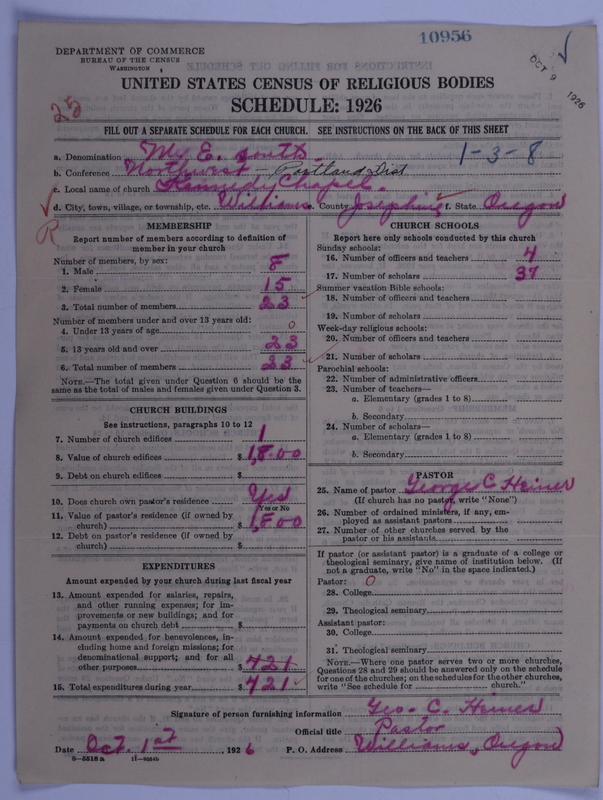 10956
DEPARTMENT OF COMMERCE
BUREAU OF THE CENSUS
WASHINGTON
OCT 9 1926
UNITED STATES CENSUS OF RELIGIOUS BODIES
SCHEDULE: 1926
FILL OUT A SEPARATE SCHEDULE FOR EACH CHURCH. SEE INSTRUCTIONS ON THE BACK OF THIS SHEET
a. Denomination M. E. South. 1-3-8
b. Conference Northwest - Portland Dist
c. Local name of church Kennedy Chapel.
d. City, town, village, or township, etc. Williams e. County Josephine f. State Oregon
MEMBERSHIP
Report number of members according to definition of
member in your church
Number of members, by sex:
1. Male 8
2. Female 15
3. Total number of members 23
Number of members under and over 13 years old:
4. Under 13 years of age 0
5. 13 years old and over 23
6. Total number of members 23
NOTE.—The total given under Question 6 should be the
same as the total of males and females given under Question 3.
CHURCH BUILDINGS
See instructions, paragraphs 10 to 12
7. Number of church edifices 1
8. Value of church edifices $1,800
9. Debt on church edifices $
10. Does church own pastor's residence Yes
Yes or No
11. Value of pastor's residence (if owned by
church) $1,500
12. Debt on pastor's residence (if owned by
church) $
EXPENDITURES
Amount expended by your church during last fiscal year
13. Amount expended for salaries, repairs,
and other running expenses; for im-
provements or new buildings; and for
payments on church debt $
14. Amount expended for benevolences, in-
cluding home and foreign missions; for
denominational support; and for all
other purposes $421
15. Total expenditures during year $421
CHURCH SCHOOLS
Report here only schools conducted by this church
Sunday schools:
16. Number of officers and teachers 4
17. Number of scholars 37
Summer vacation Bible schools:
18. Number of officers and teachers
19. Number of scholars
Week-day religious schools:
20. Number of officers and teachers
21. Number of scholars
Parochial schools:
22. Number of administrative officers
23. Number of teachers—
a. Elementary (grades 1 to 8)
b. Secondary
24. Number of scholars—
a. Elementary (grades 1 to 8)
b. Secondary
PASTOR
25. Name of pastor George C. Heiner
(If church has no pastor, write "None")
26. Number of ordained ministers, if any, em-
ployed as assistant pastors
27. Number of other churches served by the
pastor or his assistants
If pastor (or assistant pastor) is a graduate of a college or
theological seminary, give name of institution below. (If
not a graduate, write "No" in the space indicated.)
Pastor: 0
28. College
29. Theological seminary
Assistant pastor:
30. College
31. Theological seminary
NOTE.—Where one pastor serves two or more churches,
Questions 28 and 29 should be answered only on the schedule
for one of the churches; on the schedules for the other churches,
write "See schedule for church."
Signature of person furnishing information Geo. C. Heiner
Official title Pastor
Date Oct. 1st, 1926 P. O. Address Williams, Oregon
8-5518 a